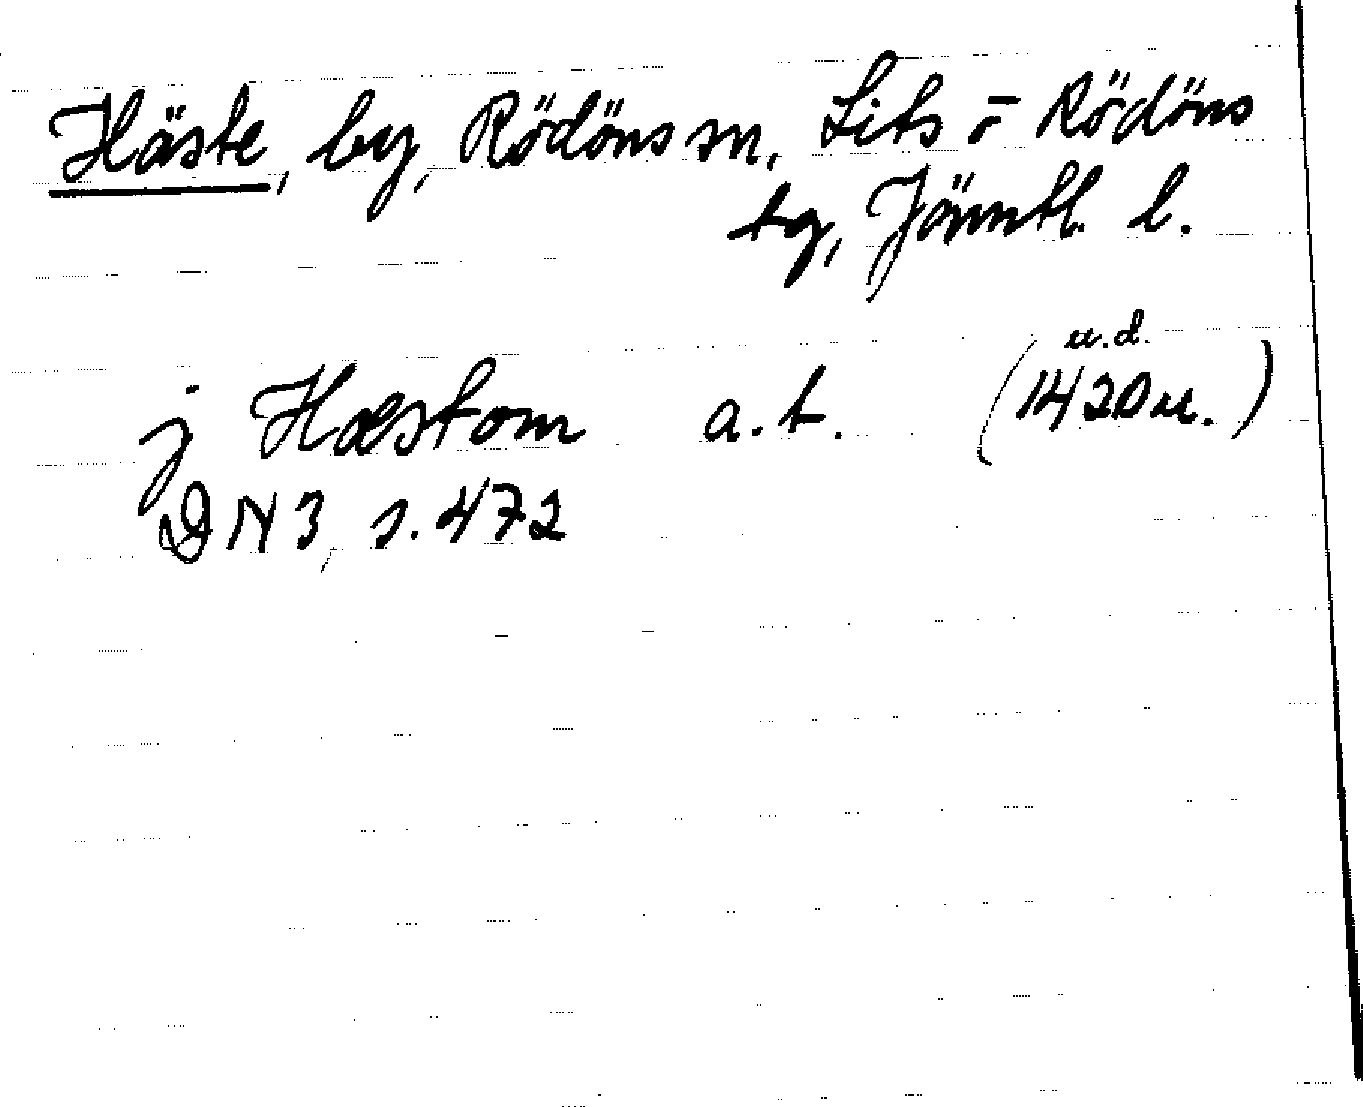 Häste, by, Rödöns sn, Lits o Rödöns
tg, Jämtl. l.
u.d.
j Hæstom a.b. (1420 u.)
DN 3, s. 472